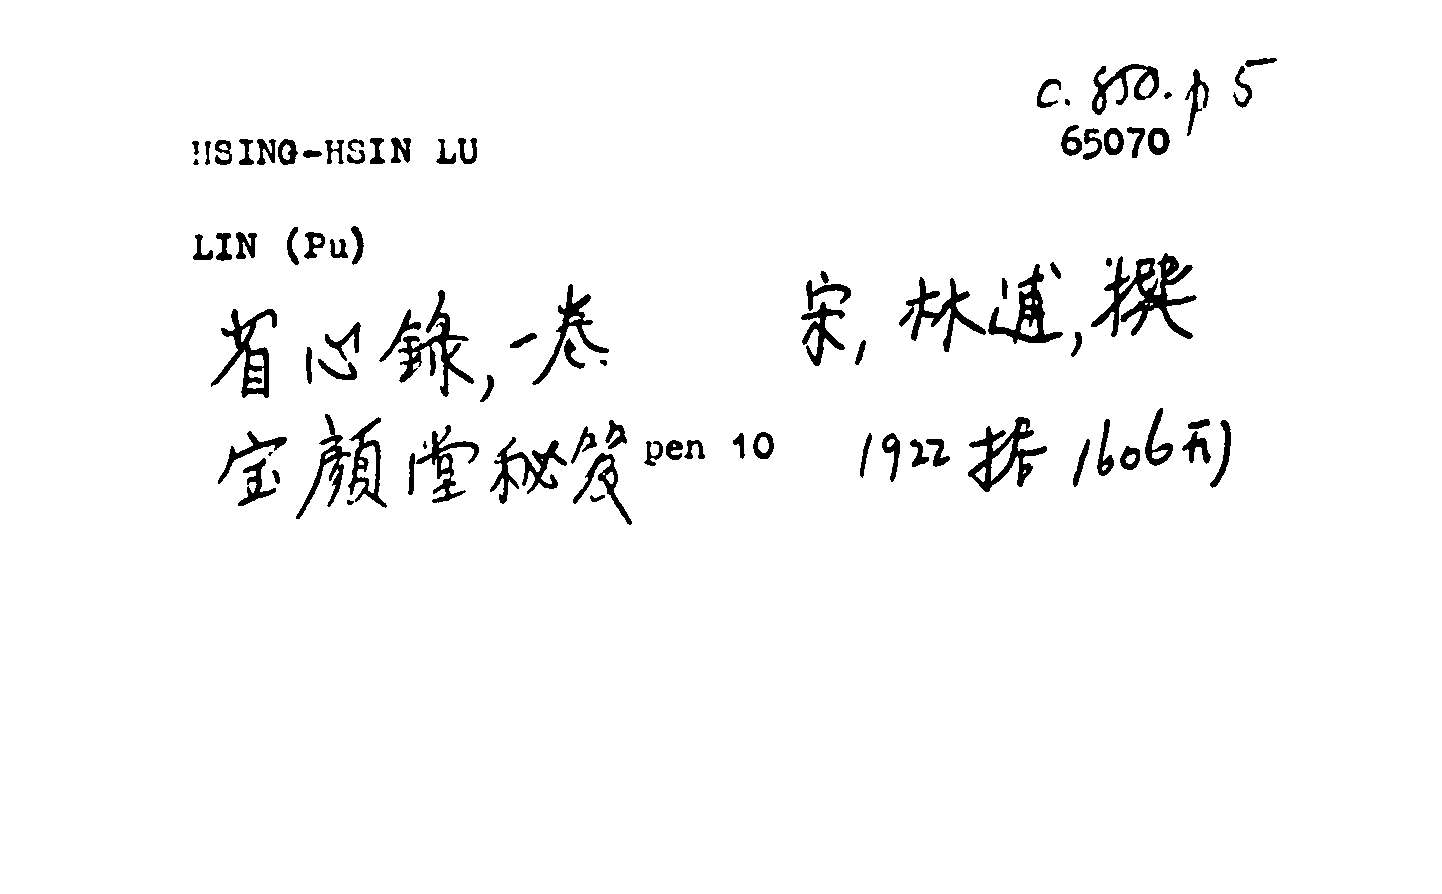 c. 850. p 5
65070
HSING-HSIN LU
LIN (Pu)
省心錄, 一卷 宋, 林逋, 撰
宝顏堂秘笈 pen 10 1922 据 1606 刊